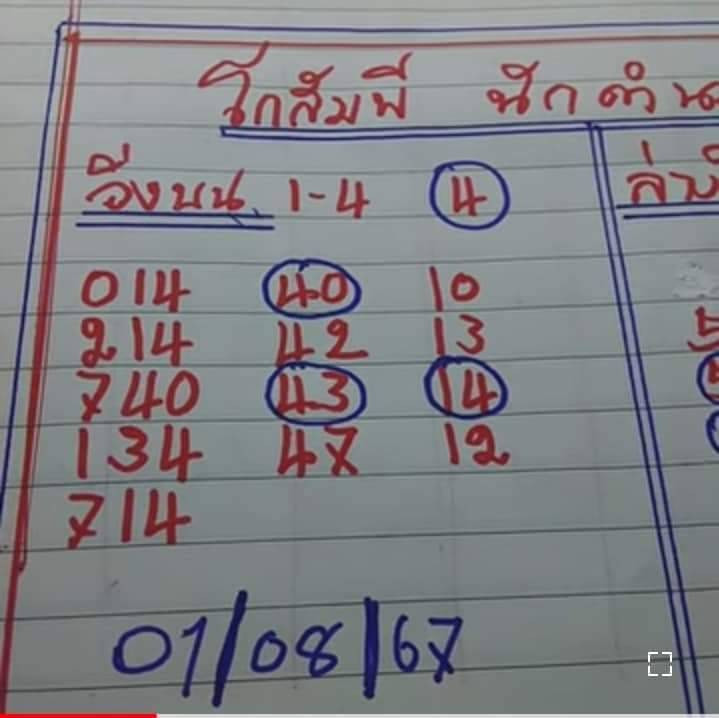 โกสัมพี นักคำน
วิ่งบน 1-4 4
ล่าง
014 40 10
214 42 13
740 43 14
134 47 12
714
01/08/67